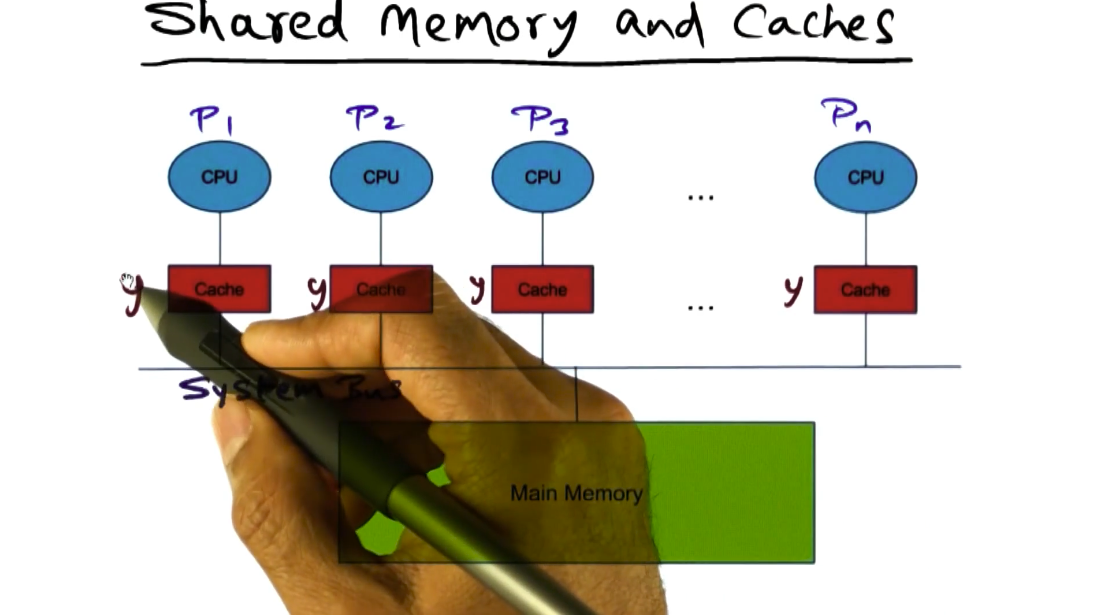 Shared Memory and Caches
P1 P2 P3 Pn
CPU CPU CPU ... CPU
y Cache y Cache y Cache ... y Cache
System Bus
Main Memory